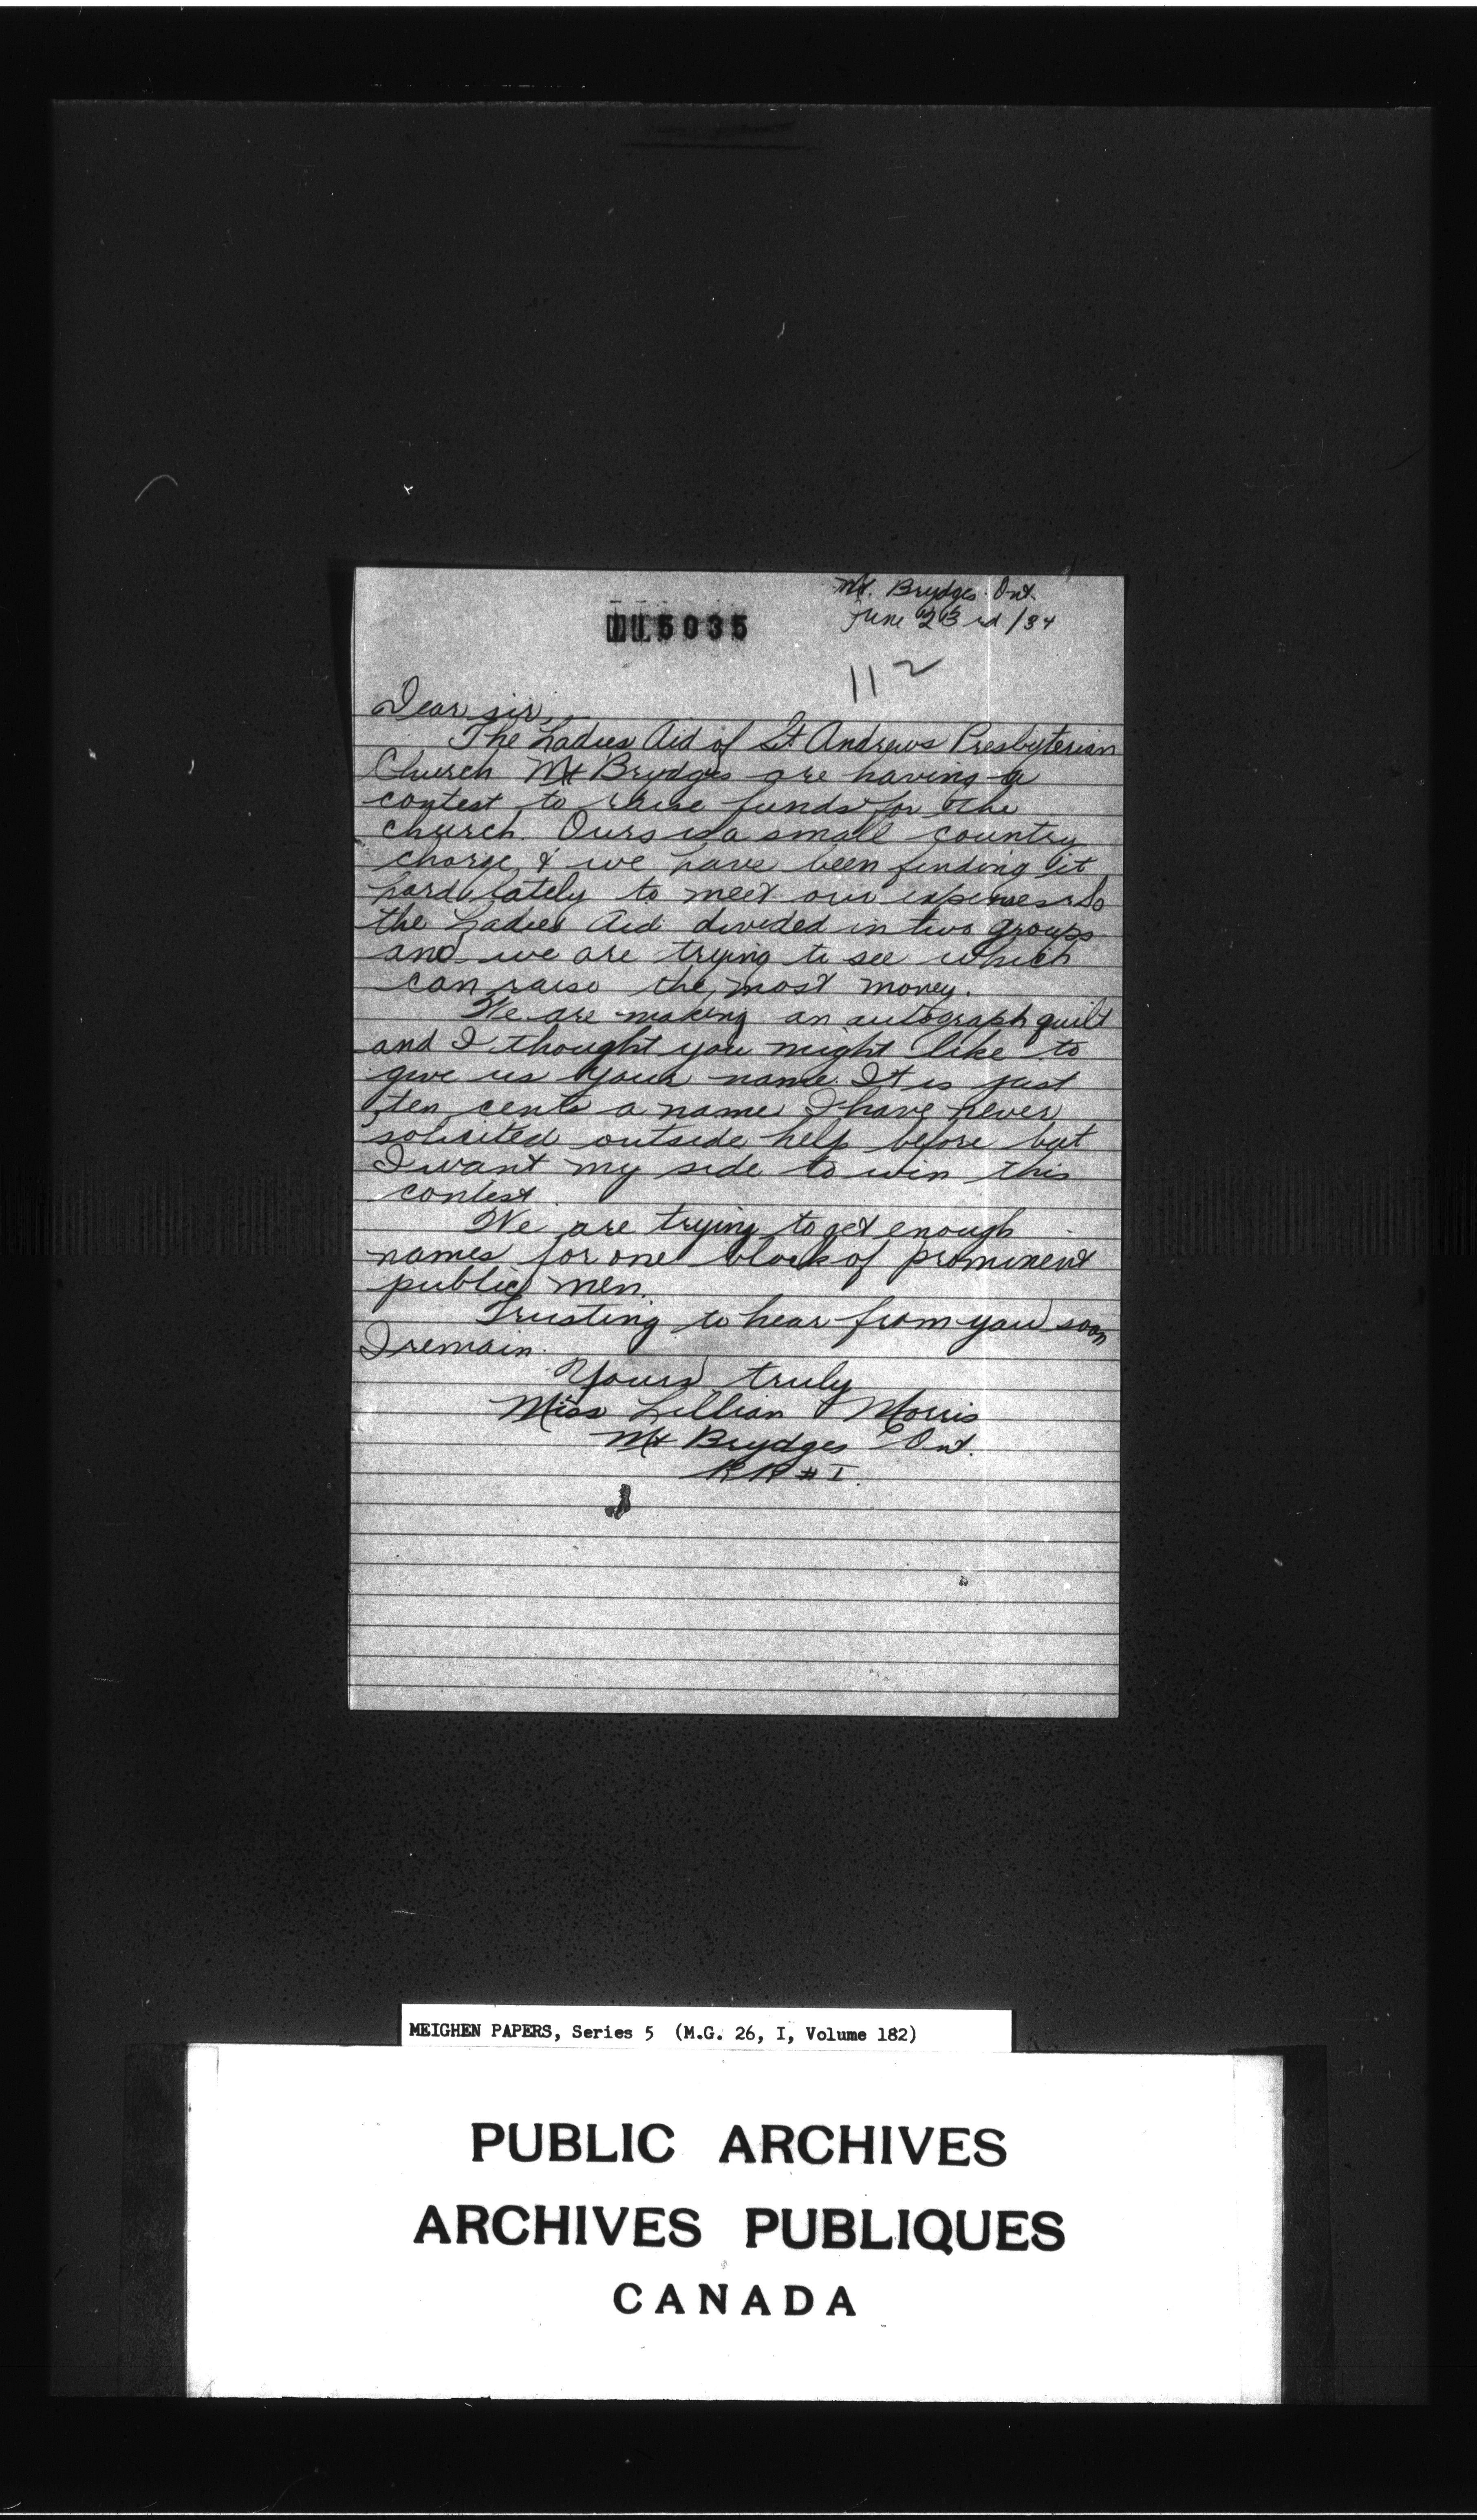 Mt. Brydges Ont.
June 23rd/34
115035
112
Dear sir,
The Ladies Aid of St Andrews Presbyterian
Church Mt Brydges are having a
contest to raise funds for the
church. Ours is a small country
charge & we have been finding it
hard lately to meet our expenses so
the Ladies Aid divided in two groups
and we are trying to see which
can raise the most money.
We are making an autograph quilt
and I thought you might like to
give us your name. It is just
ten cents a name. I have never
solicited outside help before but
I want my side to win this
contest.
We are trying to get enough
names for one block of prominent
public men.
Trusting to hear from you soon
I remain.
Yours truly
Miss Lillian Morris
Mt Brydges Ont.
RR # I.
MEIGHEN PAPERS, Series 5 (M.G. 26, I, Volume 182)
PUBLIC ARCHIVES
ARCHIVES PUBLIQUES
CANADA